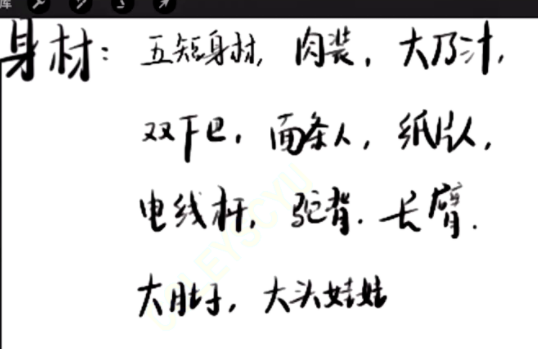 库
身材：五短身材，肉装，大乃汁，
双下巴，面条人，纸片人，
电线杆，驼背．长臂．
大肚子，大头娃娃